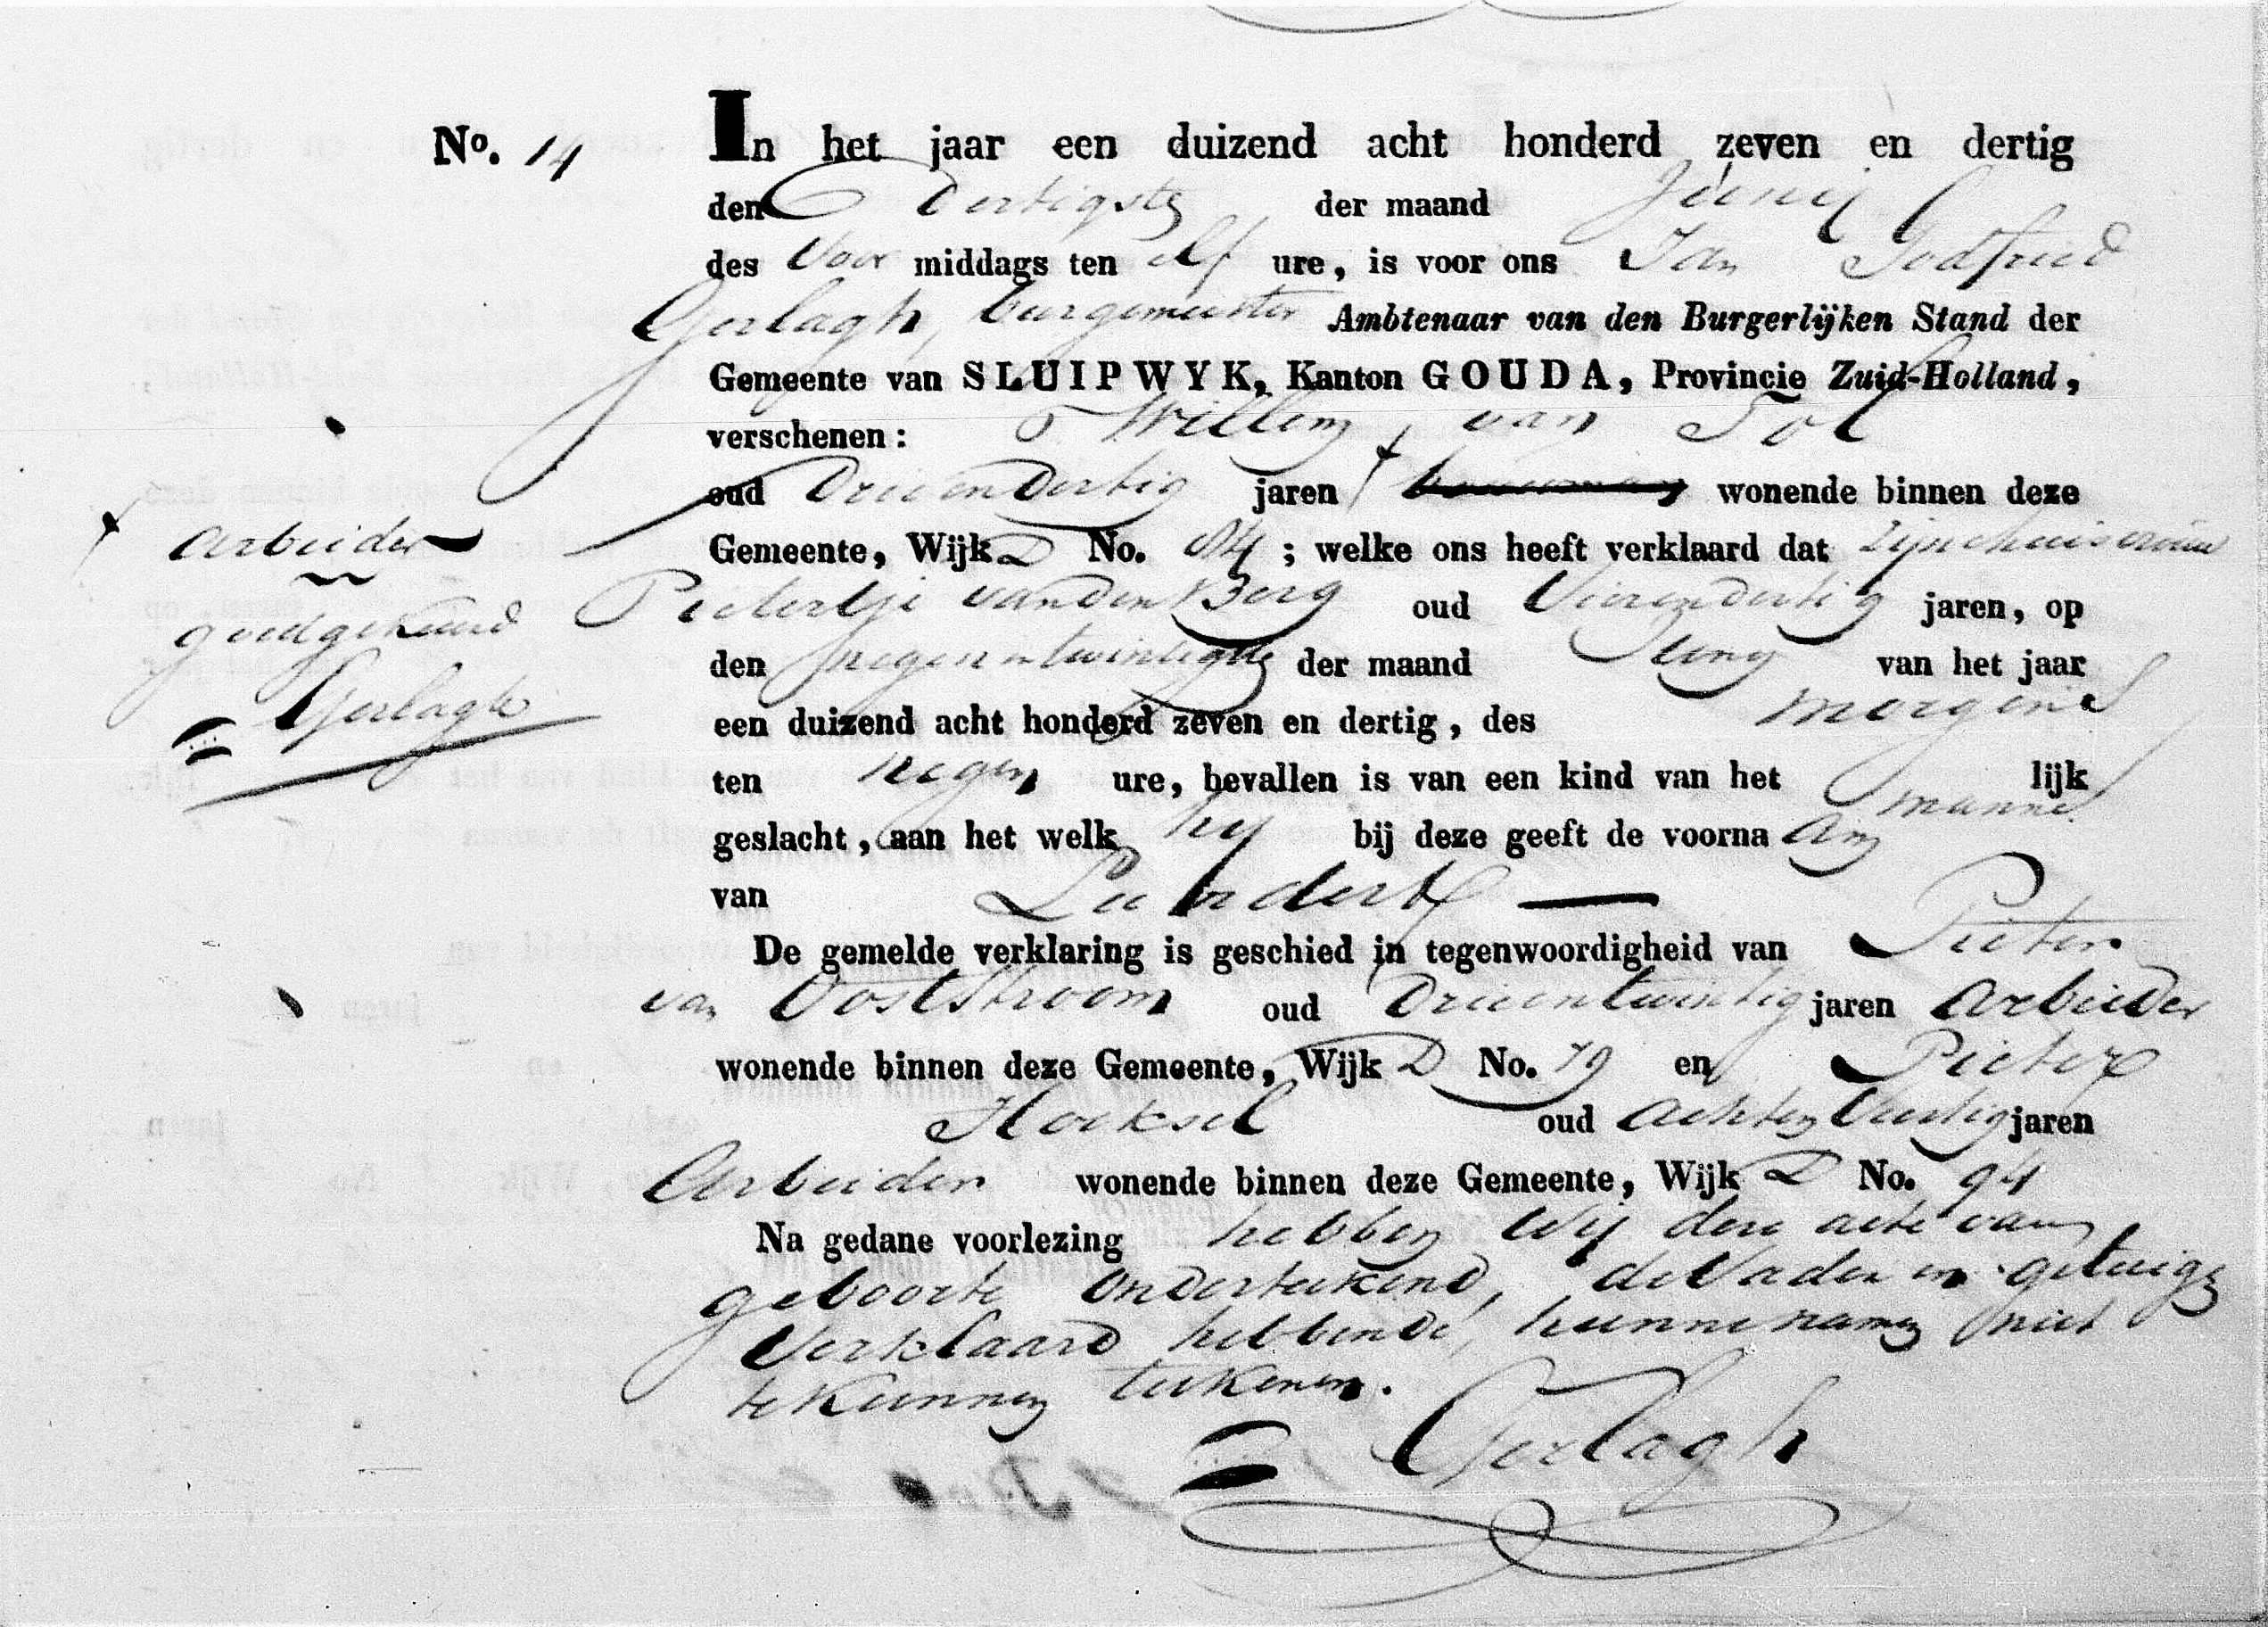 No. 14
In het jaar een duizend acht honderd zeven en dertig
den Dertigste der maand Junij
des Voor middags ten elf ure, is voor ons Jan Godfried
Gerlagh, burgemeester Ambtenaar van den Burgerlijken Stand der
Gemeente van SLUIPWYK, Kanton GOUDA, Provincie Zuid-Holland,
verschenen: Willem van Tol
oud Drieendertig jaren bouwman wonende binnen deze
arbeider
Gemeente, Wijk D No. 84 ; welke ons heeft verklaard dat zijne huisvrouw
goedgekeurd
Pietertje van den Berg oud Vierendertig jaren, op
den negenentwintigste der maand Juny van het jaar
Gerlagh
een duizend acht honderd zeven en dertig, des morgens
ten negen ure, bevallen is van een kind van het manne lijk
geslacht, aan het welk hij bij deze geeft de voorna am
van Leendert
De gemelde verklaring is geschied in tegenwoordigheid van Pieter
van Ooststroom oud Drieentwintig jaren arbeider
wonende binnen deze Gemeente, Wijk D No. 79 en Pieter
Hoeksel oud achtenveertig jaren
Arbeider wonende binnen deze Gemeente, Wijk D No. 94
Na gedane voorlezing hebben wij deze acte van
geboorte onderteekend, de Vader en getuige
Verklaard hebbende, hunne namen niet
te kunnen teekenen.
Gerlagh